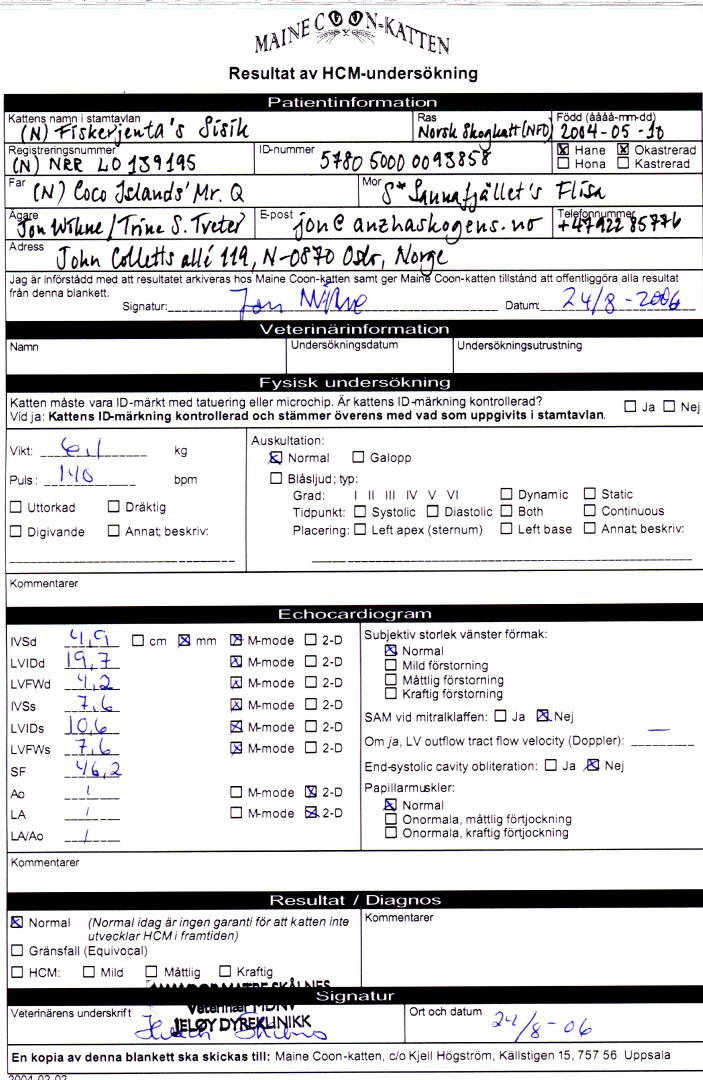 MAINE COON-KATTEN
Resultat av HCM-undersökning
Patientinformation
Kattens namn i stamtavlan
(N) Fiskerjenta's Sisik
Ras
Norsk Skogkatt (NFO)
Född (åååå-mm-dd)
2004-05-10
Registreringsnummer
(N) NRR LO 139195
ID-nummer
5780 5000 0093858
Hane Okastrerad
Hona Kastrerad
Far
(N) Coco Islands' Mr. Q
Mor
S* Saunafjället's Flisa
Ägare
Jon Wihne / Trine S. Tveter
E-post
jon@anzhaskogens.no
Telefonnummer
+47922 85776
Adress
John Colletts allé 119, N-0870 Oslo, Norge
Jag är införstådd med att resultatet arkiveras hos Maine Coon-katten samt ger Maine Coon-katten tillstånd att offentliggöra alla resultat
från denna blankett.
Signatur: Jon Wihne Datum: 24/8-2006
Veterinärinformation
Namn
Undersökningsdatum
Undersökningsutrustning
Fysisk undersökning
Katten måste vara ID-märkt med tatuering eller microchip. Är kattens ID-märkning kontrollerad?
Vid ja: Kattens ID-märkning kontrollerad och stämmer överens med vad som uppgivits i stamtavlan.
Ja Nej
Vikt: 6,1 kg
Puls: 140 bpm
Uttorkad Dräktig
Digivande Annat; beskriv:
Auskultation:
Normal Galopp
Blåsljud; typ:
Grad: I II III IV V VI Dynamic Static
Tidpunkt: Systolic Diastolic Both Continuous
Placering: Left apex (sternum) Left base Annat; beskriv:
Kommentarer
Echocardiogram
IVSd 4,9 cm mm M-mode 2-D
LVIDd 19,7 M-mode 2-D
LVFWd 4,2 M-mode 2-D
IVSs 7,6 M-mode 2-D
LVIDs 10,6 M-mode 2-D
LVFWs 7,6 M-mode 2-D
SF 46,2
Ao / M-mode 2-D
LA / M-mode 2-D
LA/Ao /
Subjektiv storlek vänster förmak:
Normal
Mild förstorning
Måttlig förstorning
Kraftig förstorning
SAM vid mitralklaffen: Ja Nej
Om ja, LV outflow tract flow velocity (Doppler): —
End-systolic cavity obliteration: Ja Nej
Papillarmuskler:
Normal
Onormala, måttlig förtjockning
Onormala, kraftig förtjockning
Kommentarer
Resultat / Diagnos
Normal (Normal idag är ingen garanti för att katten inte
utvecklar HCM i framtiden)
Gränsfall (Equivocal)
HCM: Mild Måttlig Kraftig
Kommentarer
Signatur
Veterinärens underskrift
SKÅLNES
Veterinær MDNV
JELØY DYREKLINIKK
Ort och datum
24/8-06
En kopia av denna blankett ska skickas till: Maine Coon-katten, c/o Kjell Högström, Källstigen 15, 757 56 Uppsala
2004-02-02